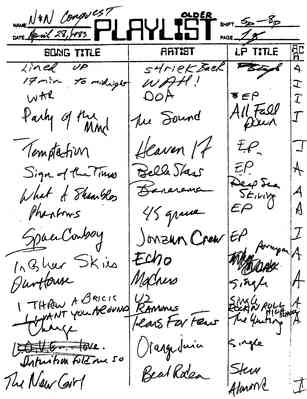 NAME N+N Conquest OLDER
PLAYLIST
SHIFT 5p-8p
DATE April 28, 1983
PAGE 1
SONG TITLE ARTIST LP TITLE
Lined UP Shriek Back A
17 min to midnight WAH! I
WAR DOA EP I
Party of the Mind The Sound All Fall Down I
Temptation Heaven 17 EP. I
Sign of the Times Belle Stars EP A
What A Shambles Bananarama Deep Sea Skiving A
Phantoms 45 grave EP A
Space Cowboy Jonzun Crew EP I
In Bluer Skies Echo Porcupine A
Our House Madness Single A
I THREW A BRICK U2
I WANT YOU AROUND Ramones
Change Tears For Fears The Hurting
L.O.V.E. ... love. Orange Juice Single
Intuition told me so
The New Girl Beat Rodeo Steve Almond I